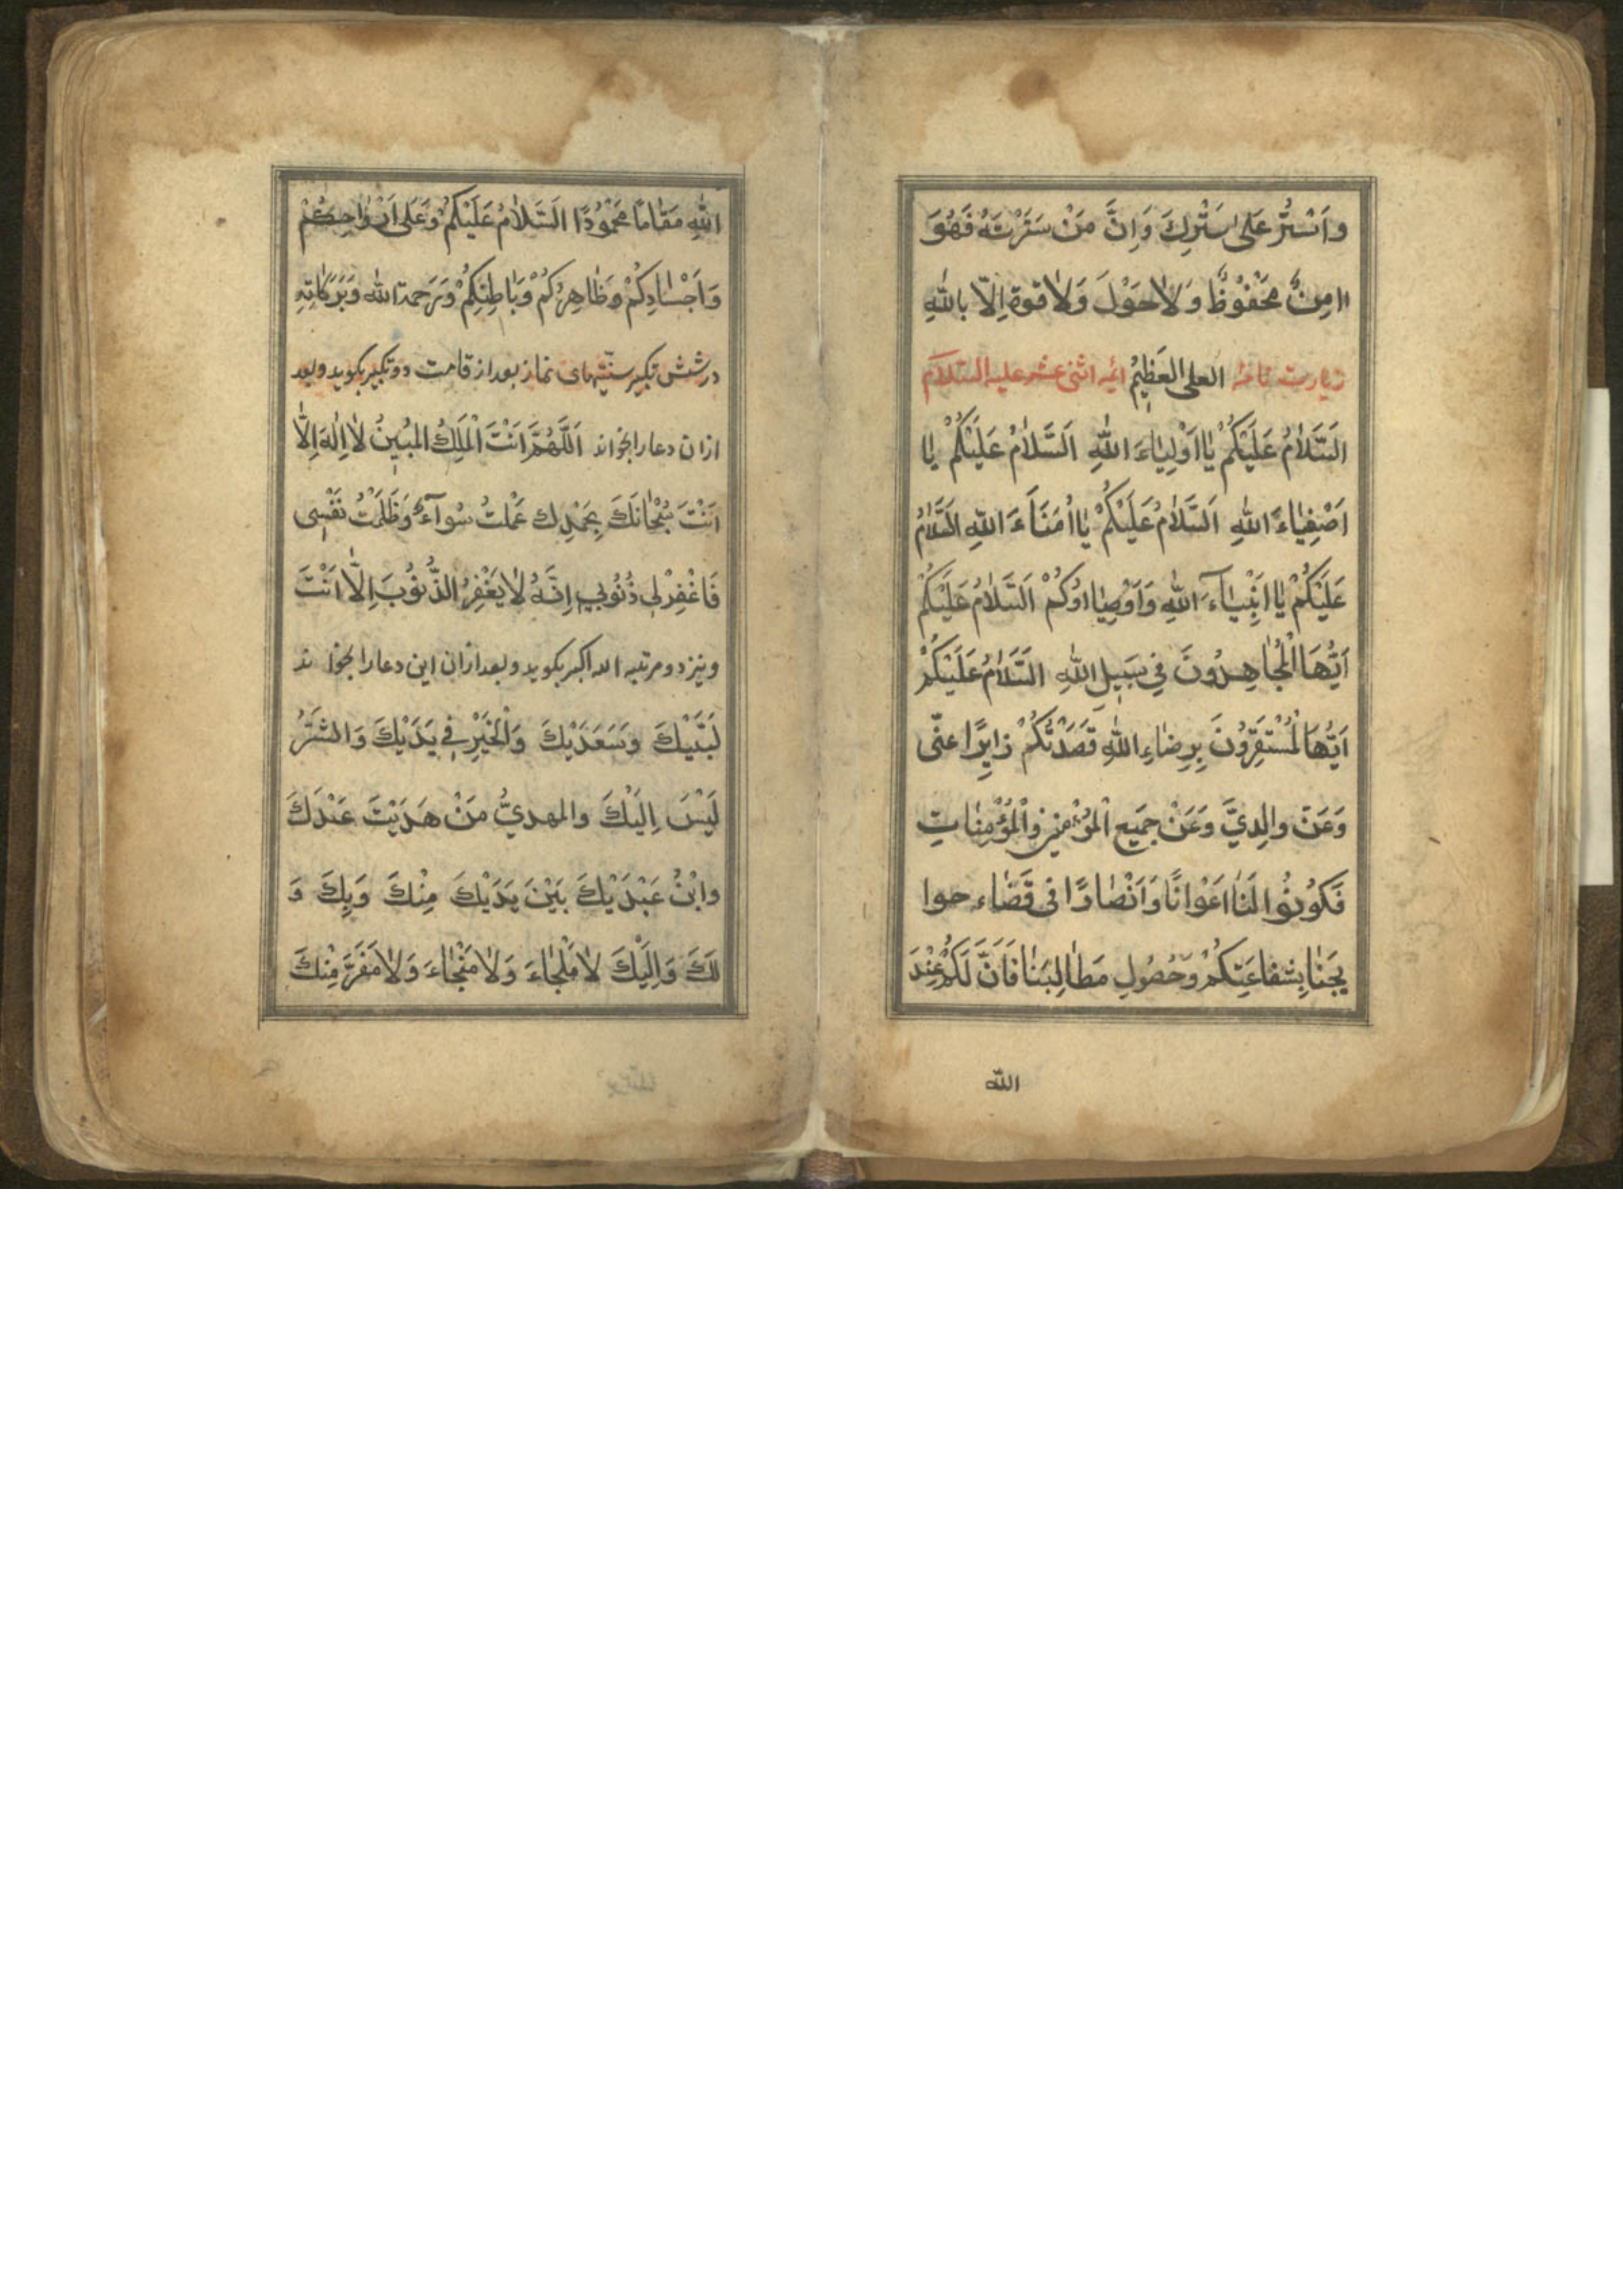 واَسْتُرُ عَلیٰ سَتْرِكَ وَاِنَّ مَنْ سَتَرْتَهُ فَهُوَ
اامِنٌ مَحْفُوظٌ وَلاٰحَوْلَ وَلاٰقوة اِلاّ بالله
زیارت نامهٔ العلی العَظیٖمُ ائمه اثنی عشر علیه السّلام
اَلسَّلاٰمُ عَلَیْكُمْ یٰا اَوْلِیٰاءَ اللهِ اَلسَّلاٰمُ عَلَیْكُمْ یٰا
اَصْفِیٰاءَ اللهِ اَلسَّلاٰمُ عَلَیْكُمْ یٰا اُمَنَاءَ اللهِ اَلسَّلاٰمُ
عَلَیْكُمْ یٰا اَنْبِیٰآءَ اللهِ وَاَوْصِیٰااؤُكُمْ اَلسَّلاٰمُ عَلَیْكُمْ
اَیُّهَا الْمُجٰاهِدُونَ فِی سَبیٖلِ اللهِ اَلسَّلاٰمُ عَلَیْكُمْ
اَیُّهَا لْمُسْتَقِرّوُنَ بِرِضٰاءِ اللهِ قَصَدْتُكُمْ زٰایِرًا عنّی
وَعَنْ والِدِیَّ وَعَنْ جَمیَعِ الْمُؤْمنینَ وَالْمُؤْمِنٰاتِ
فَكوُنوُا لَنٰا اَعْوٰانًا وَاَنْصٰارًا فی قَضٰاءِ حوا
یِجَنٰا بِشفاعَتِكُمْ وَحُصُولِ مَطٰالِبَنٰا فَاَنَّ لَكُمْ عِنْدَ
الله
اللهِ مَقٰامًا مَحْمُودًا اَلسَّلاٰمُ عَلَیْكُمْ وَعَلی اَرْوٰاحِكُمْ
وَاَجْسٰادِكُمْ وَظٰاهِرُكُمْ وَبٰاطِنِكُمْ وَرَحمة الله وَبَرَكٰاتِهِ
در شش تكبیر سنّتیهای نماز بعد از قامت دو تكبیر بكوید و بعد
ازان دعا را بخواند اَللّهُمَّ اَنْتَ اَلْمَلِكُ المُبیٖنُ لاٰ اِلٰهَ اِلاّٰ
اَنْتَ سُبْحٰانَكَ بِحَمْدِك عَمْلتُ سُوآءً وَظَلَمْتُ نَفْسٖی
فَاغْفِرْلٖی ذُنُوبٖی اِنَّهُ لاٰ یَغْفِرُ الذُّنوُبَ اِلاّٰ اَنْتَ
ونیز دو مرتبه الله اكبر بكوید و بعد ازان این دعا را بخواند
لَبَّیْكَ وَسَعَدَیْكَ وَالْخَیْرِ فٖی یَدَیْكَ وَالشَّرُّ
لَیْسَ اِلَیْكَ والمهدیُّ مَنْ هَدَیْتَ عَنْدَكَ
وابْنُ عَبْدَیْكَ بَیْنَ یَدَیْكَ مِنْكَ وَبِكَ وَ
لَكَ وَاِلَیْكَ لاٰ مَلْجٰاءَ وَلاٰ مَنْجٰاءَ وَلاٰ مَفَرَّ مِنْكَ